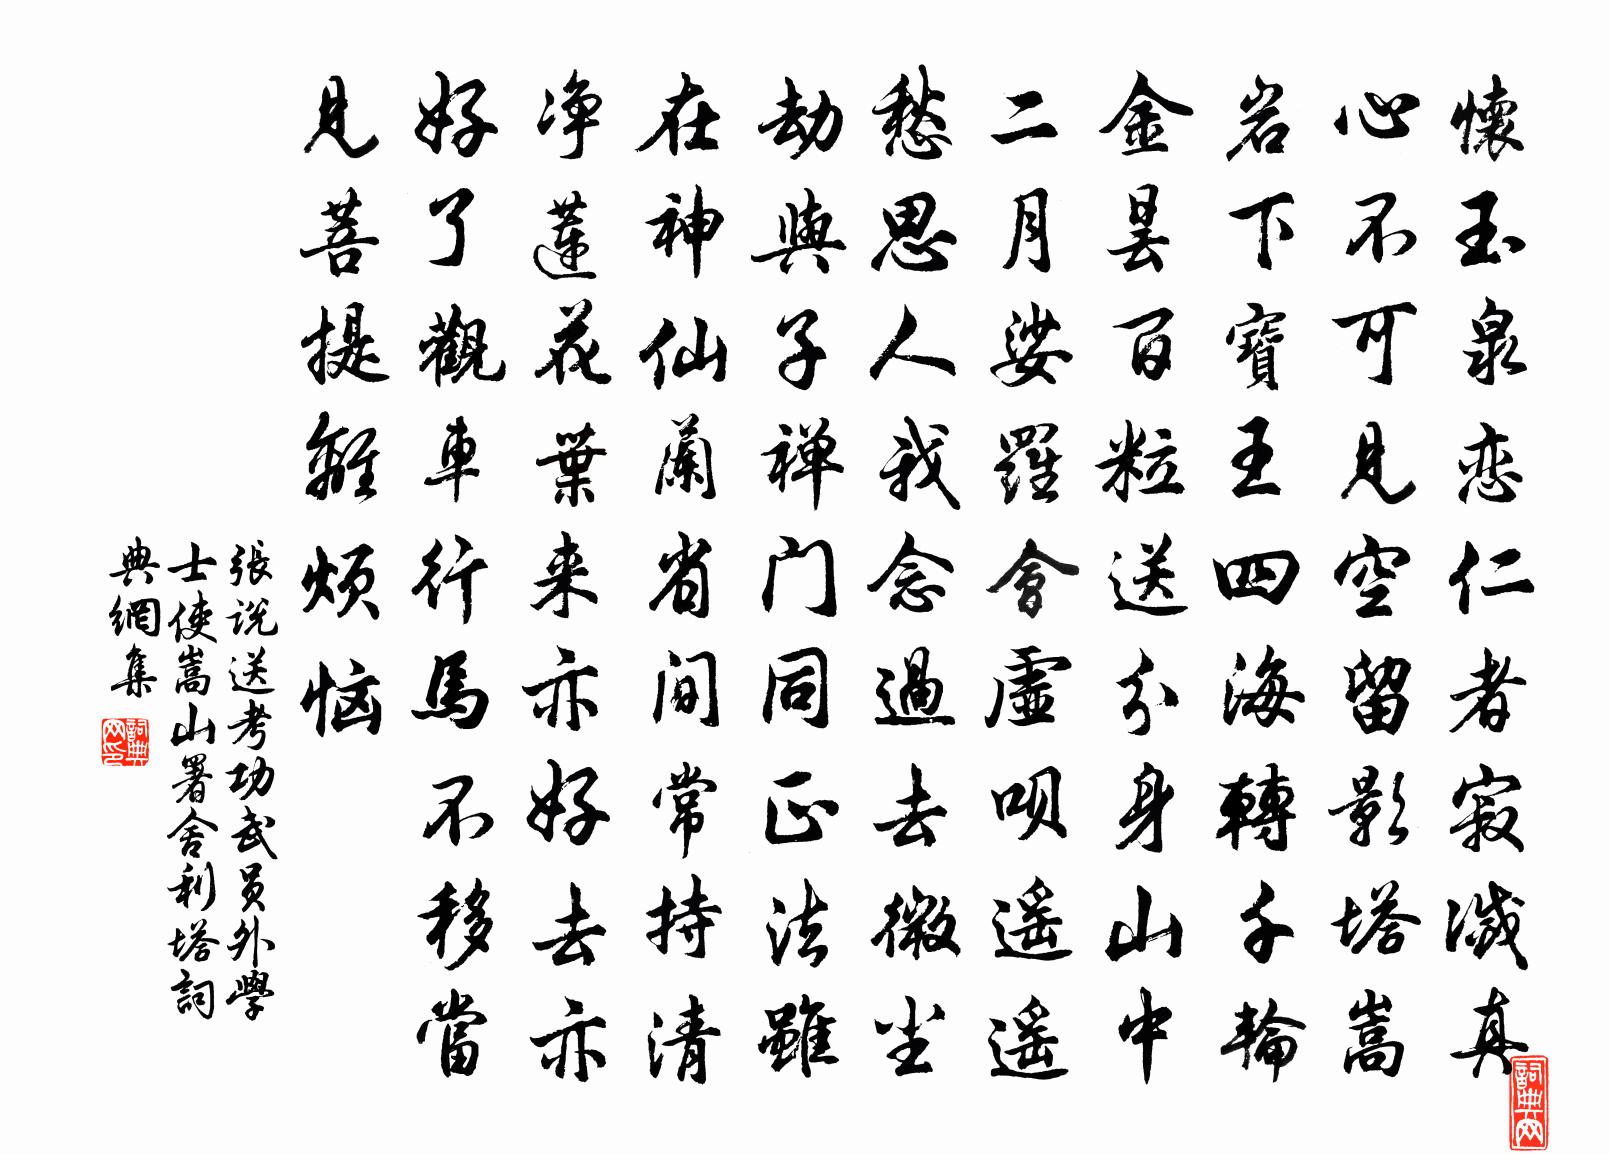 懷玉泉恋仁者寂滅真
心不可見空留影塔嵩
岩下寶王四海轉千輪
金曇百粒送分身山中
二月娑羅會虛唄遥遥
愁思人我念過去微尘
劫與子禅门同正法雖
在神仙蘭省间常持清
净蓮花葉来亦好去亦
好了觀車行馬不移當
見菩提離烦恼
張说送考功武员外學
士使嵩山署舍利塔詞
典網集
詞典网印
詞典网